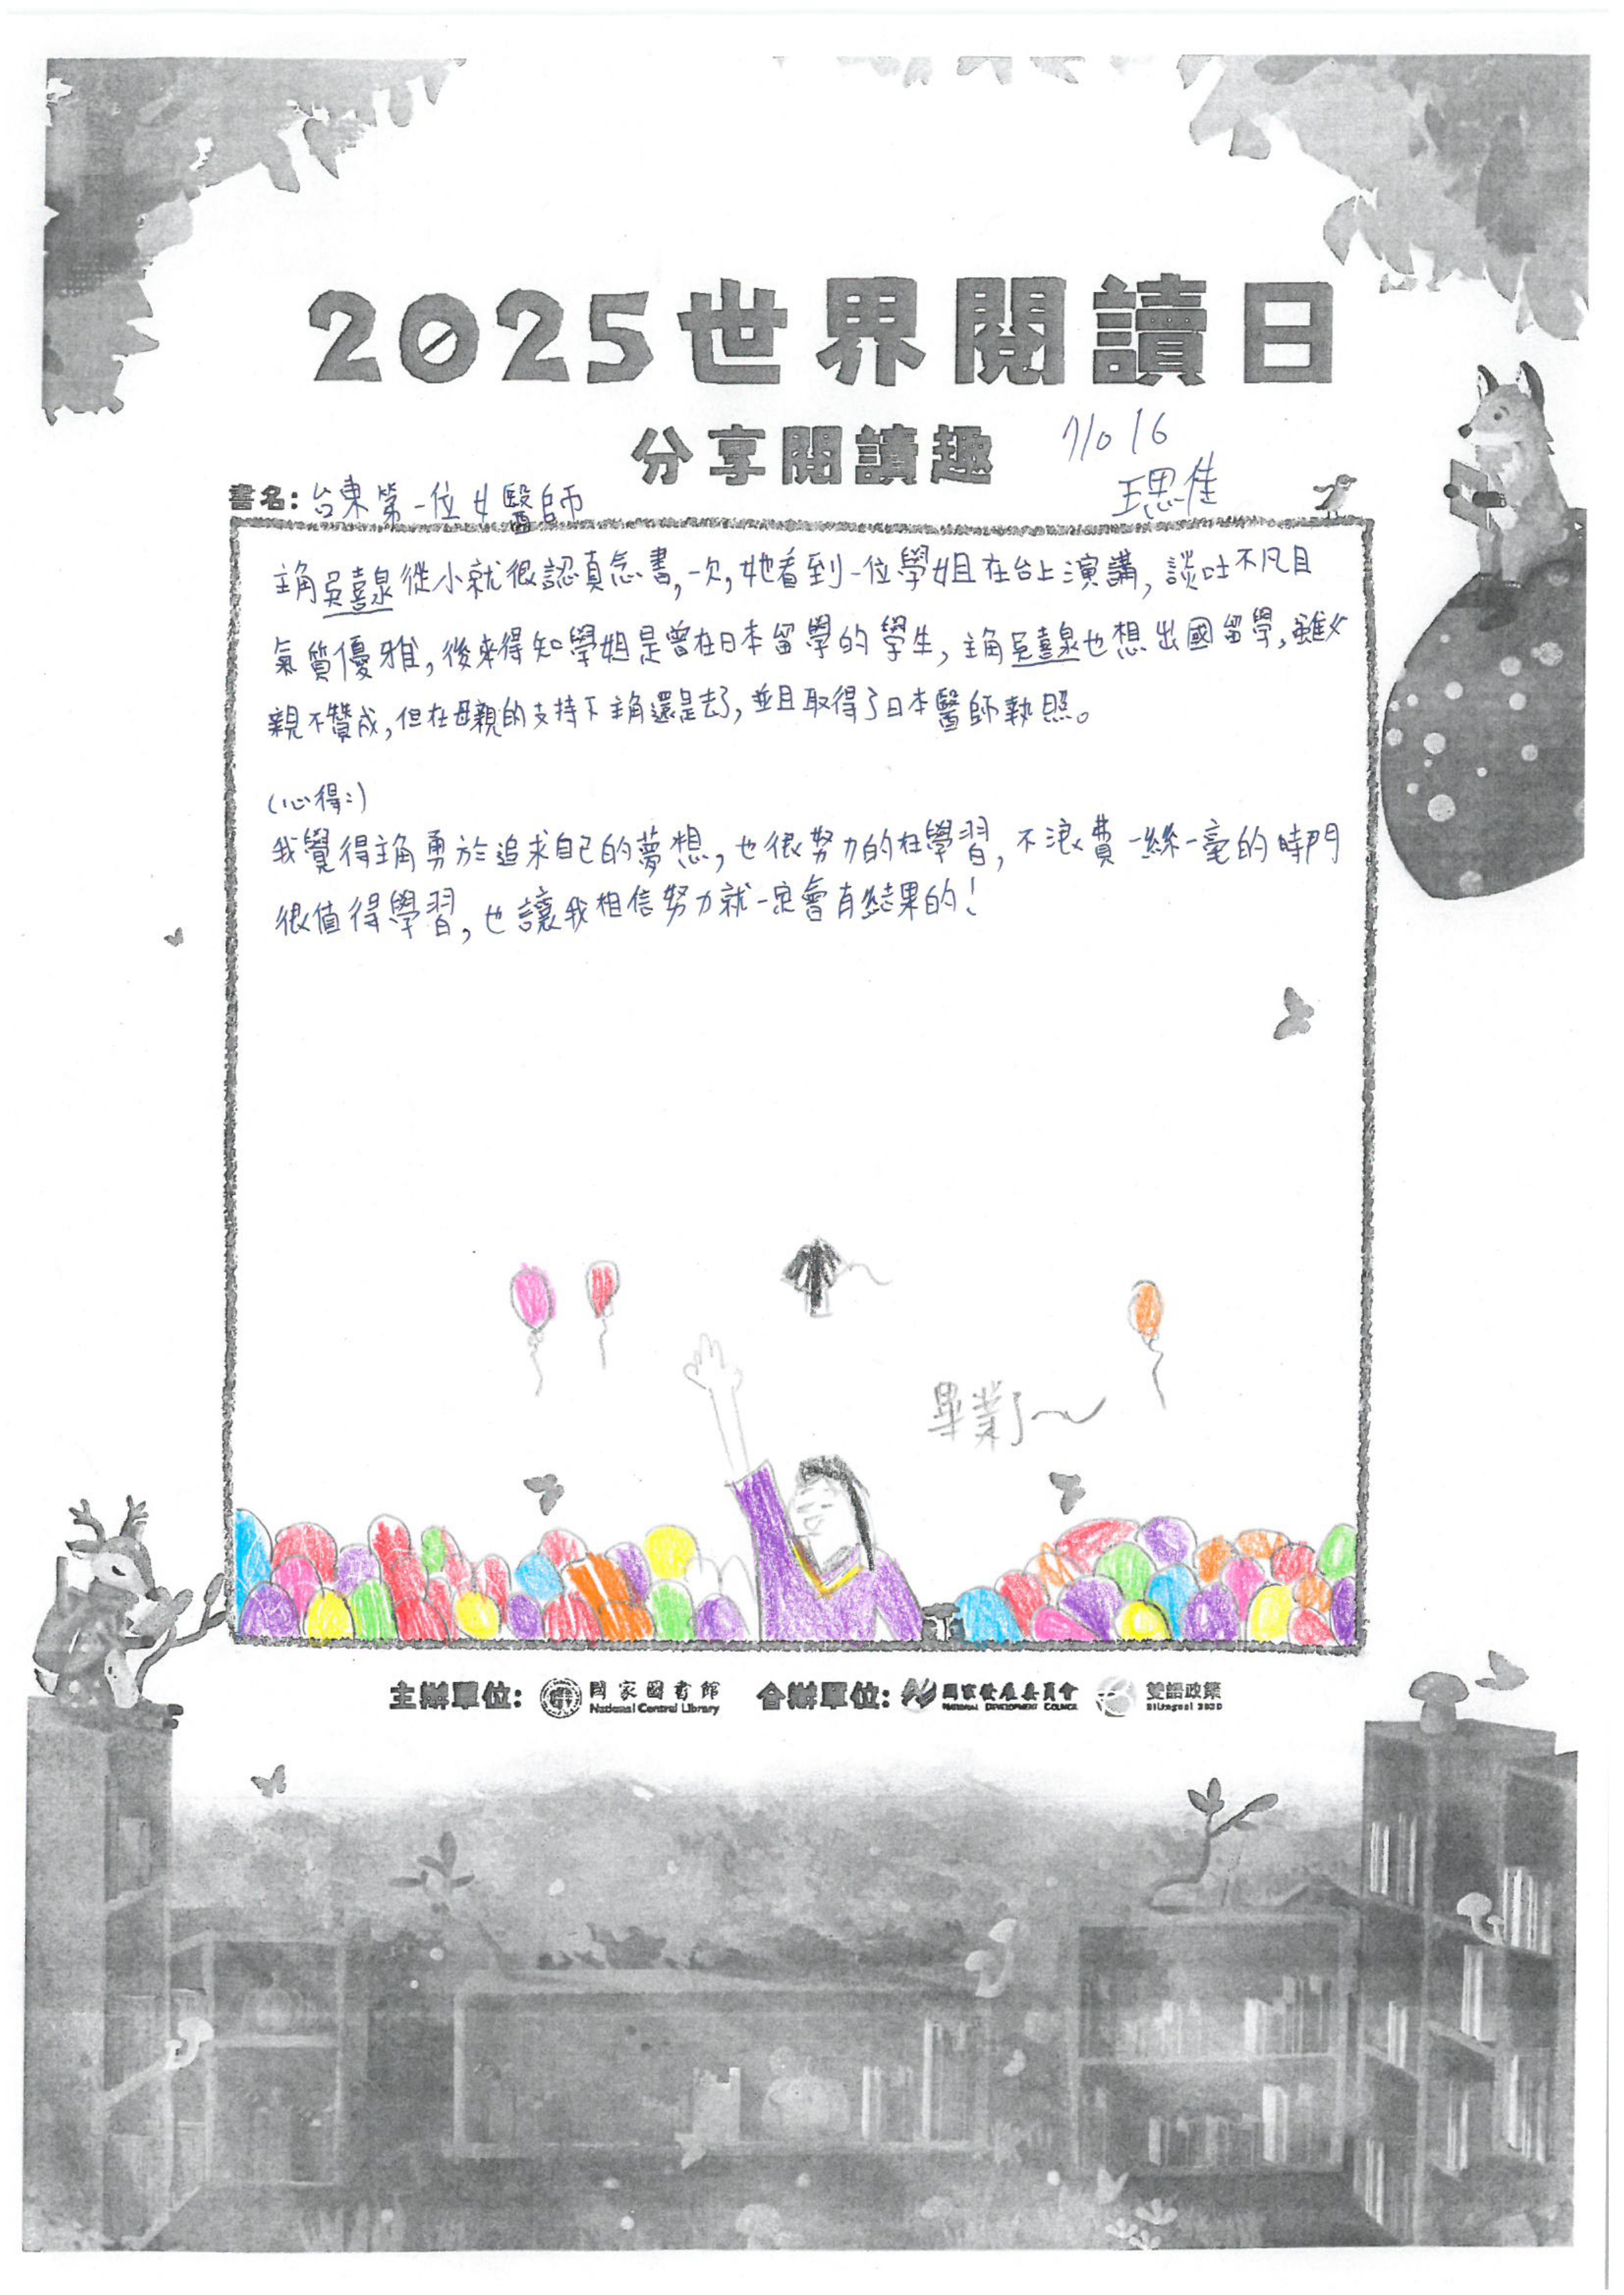 2025世界閱讀日
分享閱讀趣
71016
王思佳
書名：台東第一位女醫師
主角吳嘉泉從小就很認真念書,一次,她看到一位學姐在台上演講,談吐不凡且
氣質優雅,後來得知學姐是曾在日本留學的學生,主角吳嘉泉也想出國留學,雖父
親不贊成,但在母親的支持下主角還是去了,並且取得了日本醫師執照。
(心得:)
我覺得主角勇於追求自己的夢想,也很努力的在學習,不浪費一絲一毫的時間
很值得學習,也讓我相信努力就一定會有結果的!
畢業了~
主辦單位: 國家圖書館 National Central Library 合辦單位: 國家發展委員會 NATIONAL DEVELOPMENT COUNCIL 雙語政策 Bilingual 2030